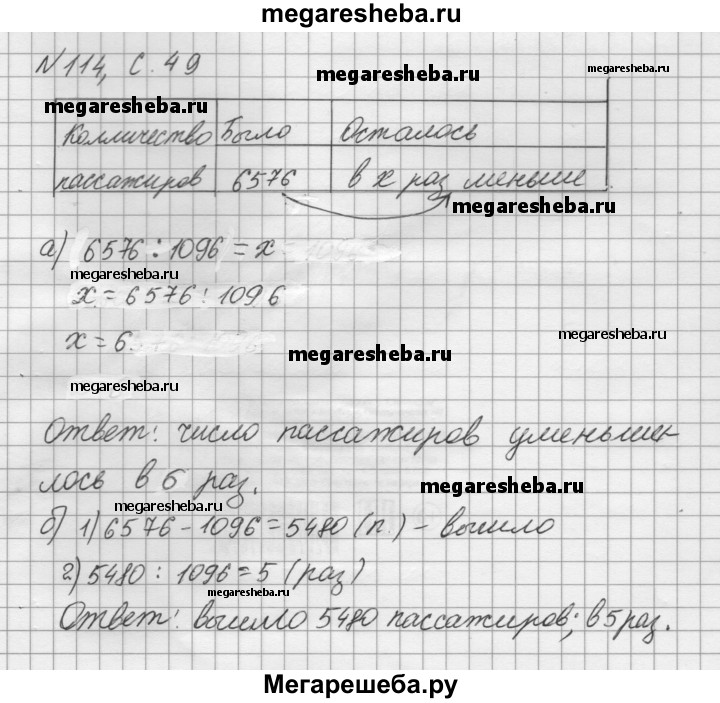 megaresheba.ru
№114, с. 49
megaresheba.ru megaresheba.ru
megaresheba.ru
Колличество Было Осталось
пассажиров 6576 в x раз меньше
megaresheba.ru
а) 6576 : 1096 = x
megaresheba.ru
x = 6576 : 1096
x = 6.
megaresheba.ru megaresheba.ru
megaresheba.ru
Ответ: число пассажиров уменьши-
лось в 6 раз.
megaresheba.ru
megaresheba.ru
б) 1) 6576 - 1096 = 5480 (п.) - вышло
2) 5480 : 1096 = 5 (раз)
megaresheba.ru
Ответ: вышло 5480 пассажиров; в 5 раз.
Мегарешеба.ру